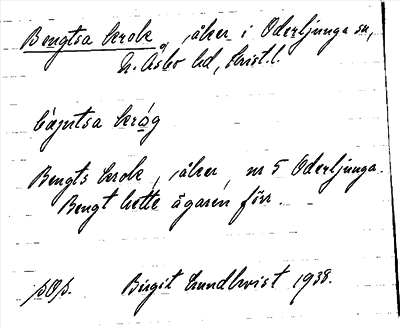 Bengtsa krok, åker i Oderljunga sn,
N. Åsbo hd, Krist. l.
bäŋtsa kråg
Bengts krok, åker, nr 5 Oderljunga.
Bengt hette ägaren förr.
Birgit Lundkvist 1938.